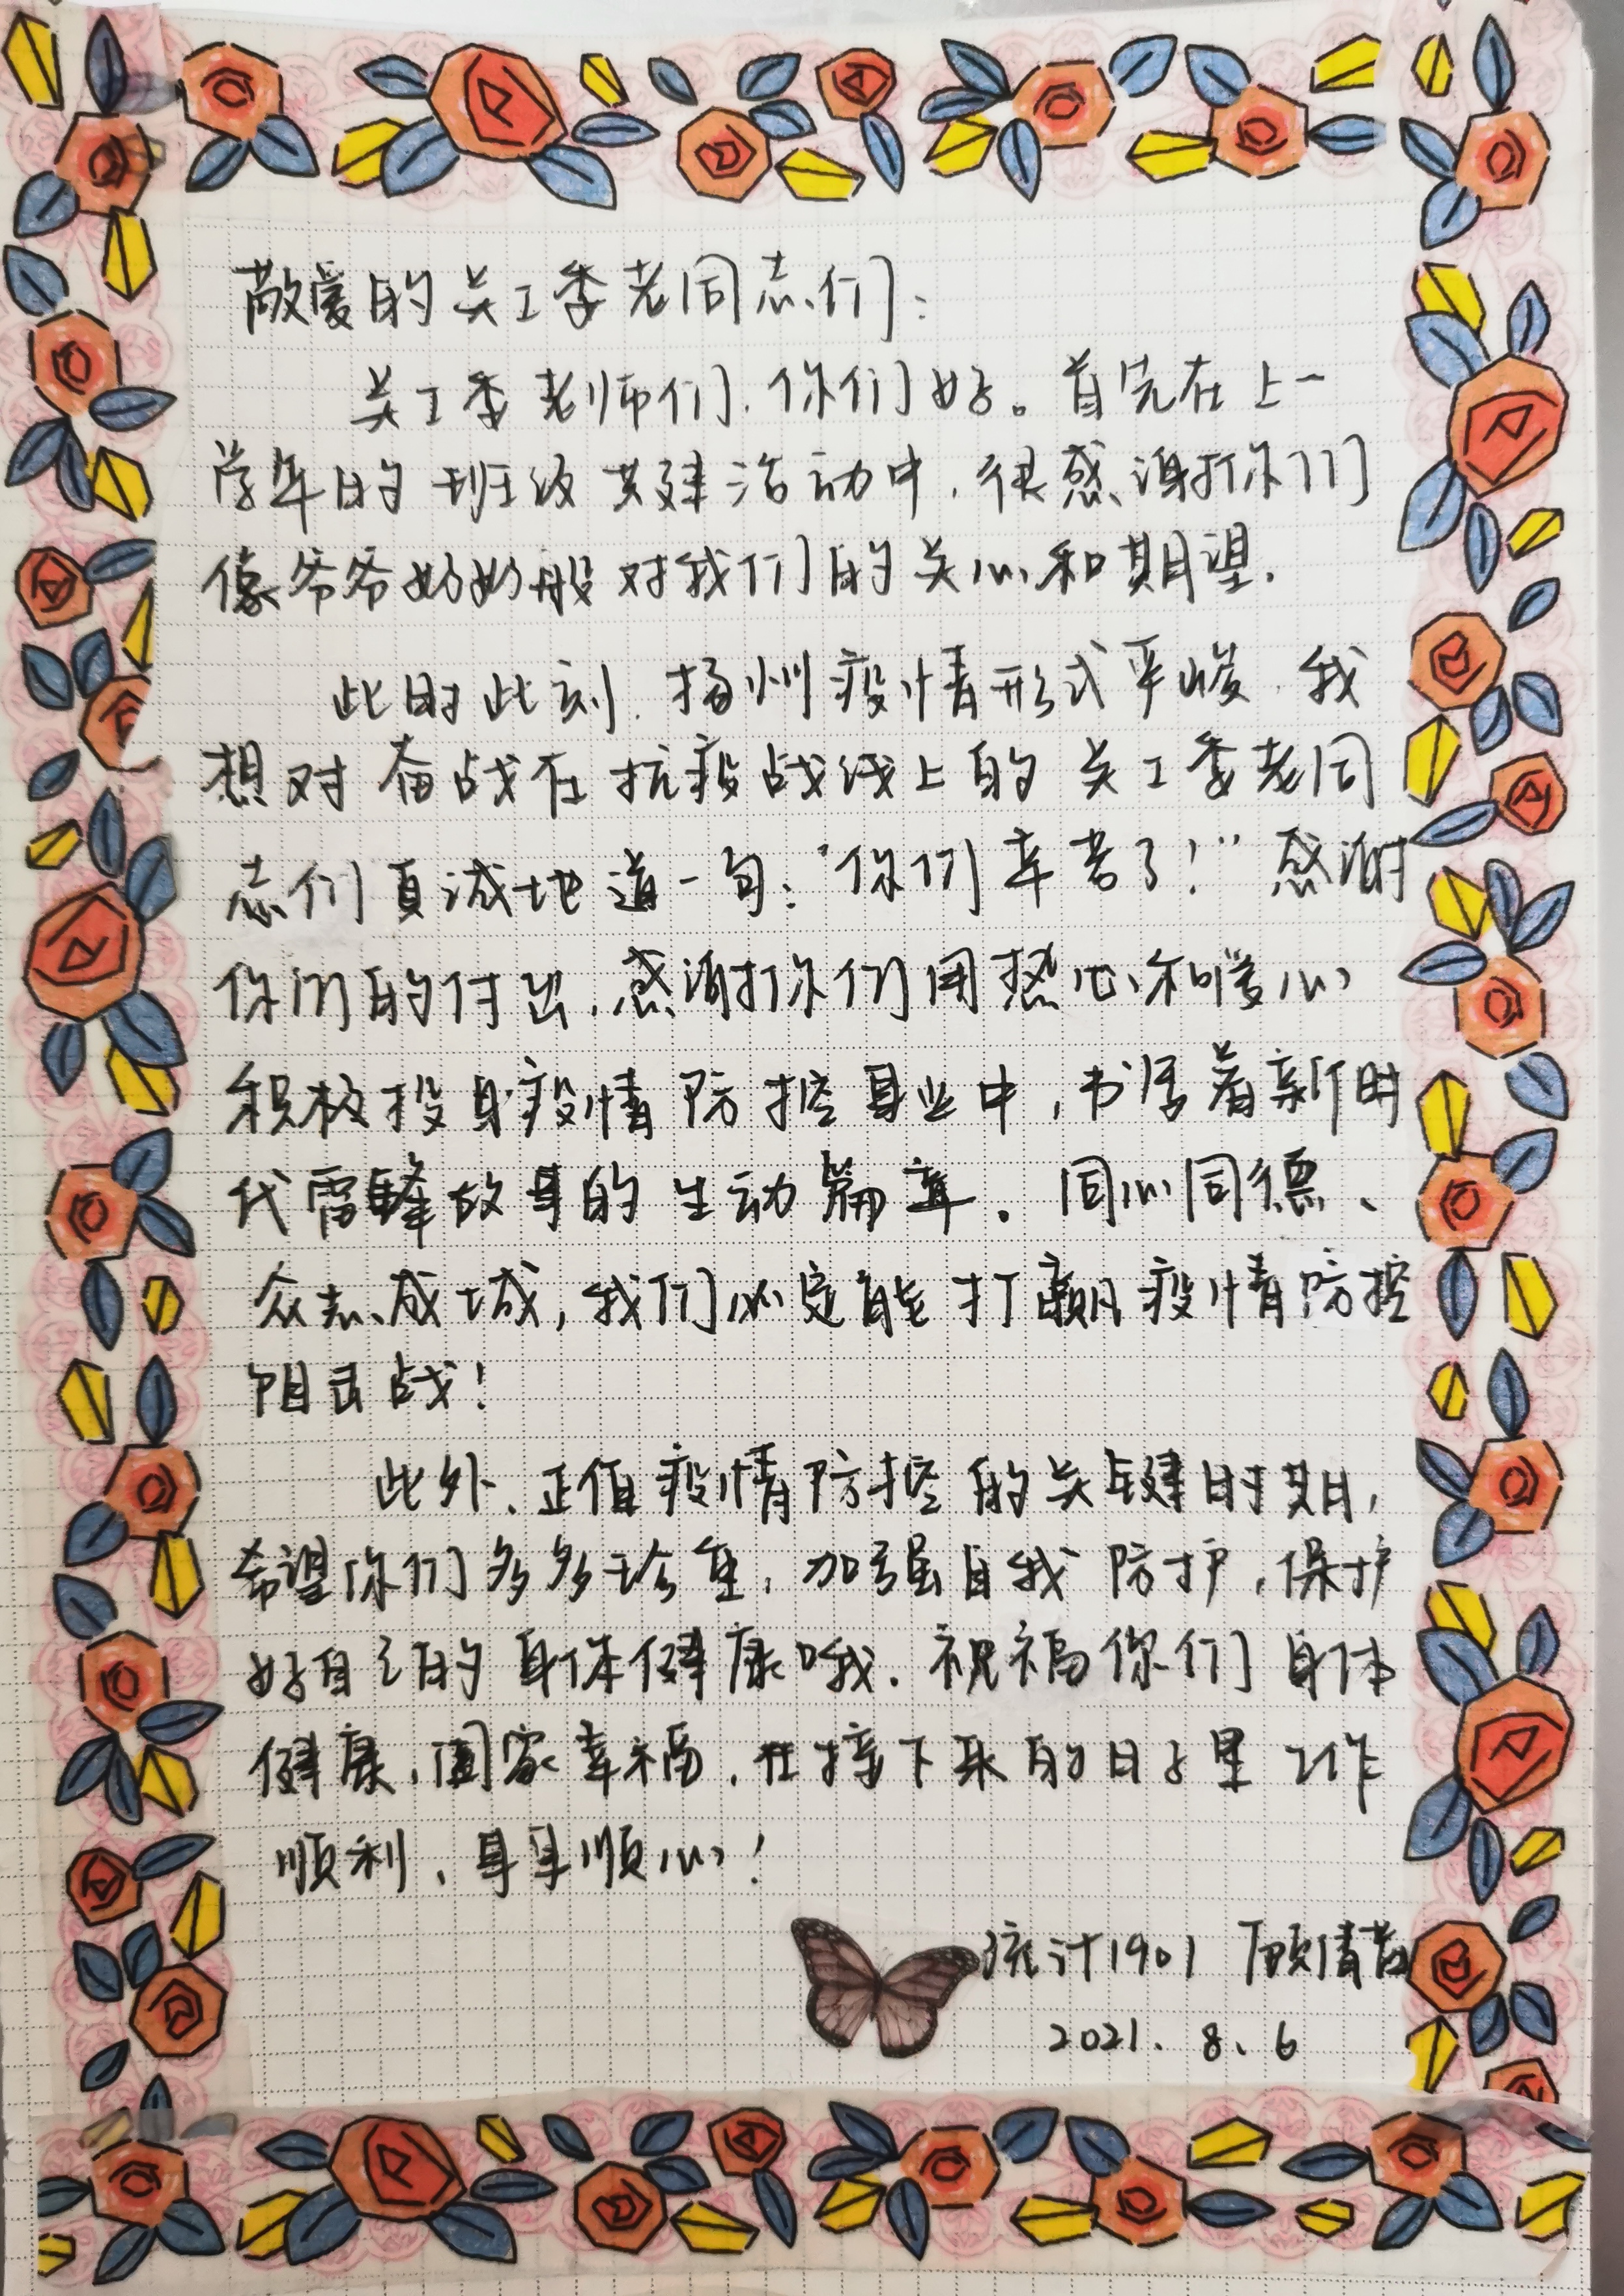 敬爱的关工委老同志们：
关工委老师们，你们好。首先在上一
学年的班级共建活动中，很感谢你们
像爷爷奶奶般对我们的关心和期望．
此时此刻，扬州疫情形式严峻，我
想对奋战在抗疫战线上的关工委老同
志们真诚地道一句：“你们辛苦了！”感谢
你们的付出，感谢你们用热心和爱心
积极投身疫情防控事业中，书写着新时
代雷锋故事的生动篇章．同心同德、
众志成城，我们必定能打赢疫情防控
阻击战！
此外，正值疫情防控的关键时期，
希望你们多多珍重，加强自我防护，保护
好自己的身体健康哦．祝福你们身体
健康，阖家幸福，在接下来的日子里工作
顺利，事事顺心！
统计1901 顾倩
2021.8.6